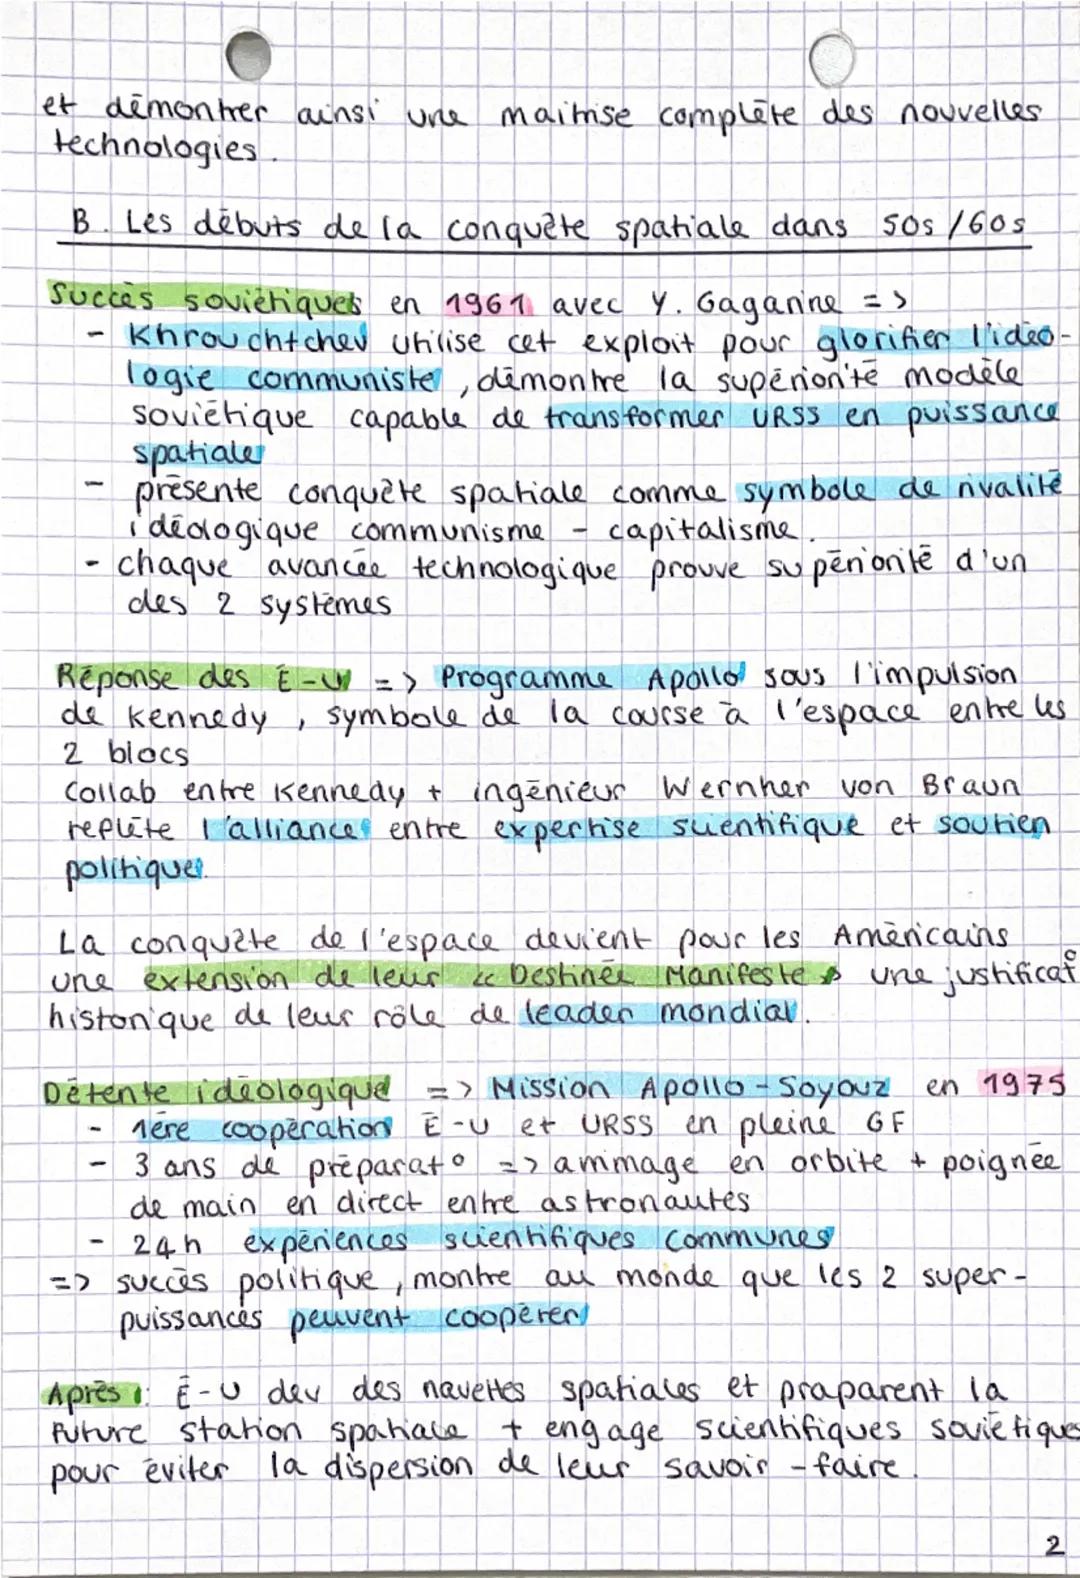 et démontrer ainsi une maitrise complète des nouvelles
technologies.
B. Les débuts de la conquête spatiale dans 50s/60s
Succès soviétiques en 1961 avec Y. Gaganine =>
- Khrouchtchev utilise cet exploit pour glorifier l'idéo-
logie communiste, démontre la supériorité modèle
soviétique capable de transformer URSS en puissance
spatiale
- présente conquête spatiale comme symbole de rivalité
idéologique communisme - capitalisme.
- chaque avancée technologique prouve supériorité d'un
des 2 systèmes
Réponse des É-U => Programme Apollo sous l'impulsion
de Kennedy, symbole de la course à l'espace entre les
2 blocs
Collab entre Kennedy + ingénieur Wernher von Braun
replète l'alliance entre expertise scientifique et soutien
politique.
La conquête de l'espace devient pour les Américains
une extension de leur « Destinée Manifeste » une justificat°
historique de leur rôle de leader mondial.
Détente idéologique => Mission Apollo-Soyouz en 1975
- 1ère coopération É-U et URSS en pleine GF
- 3 ans de préparat° => ammage en orbite + poignée
de main en direct entre astronautes
- 24h expériences scientifiques communes
=> succès politique, montre au monde que les 2 super-
puissances peuvent coopérer
Après : É-U dev des navettes spatiales et praparent la
future station spatiale + engage scientifiques soviétiques
pour éviter la dispersion de leur savoir-faire.
2